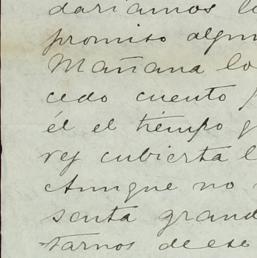 daríamos l
promiso algun
Mañana lo
cedo cuento
él el tiempo
vez cubierta l
Aunque no
senta grand
tarnos de ese